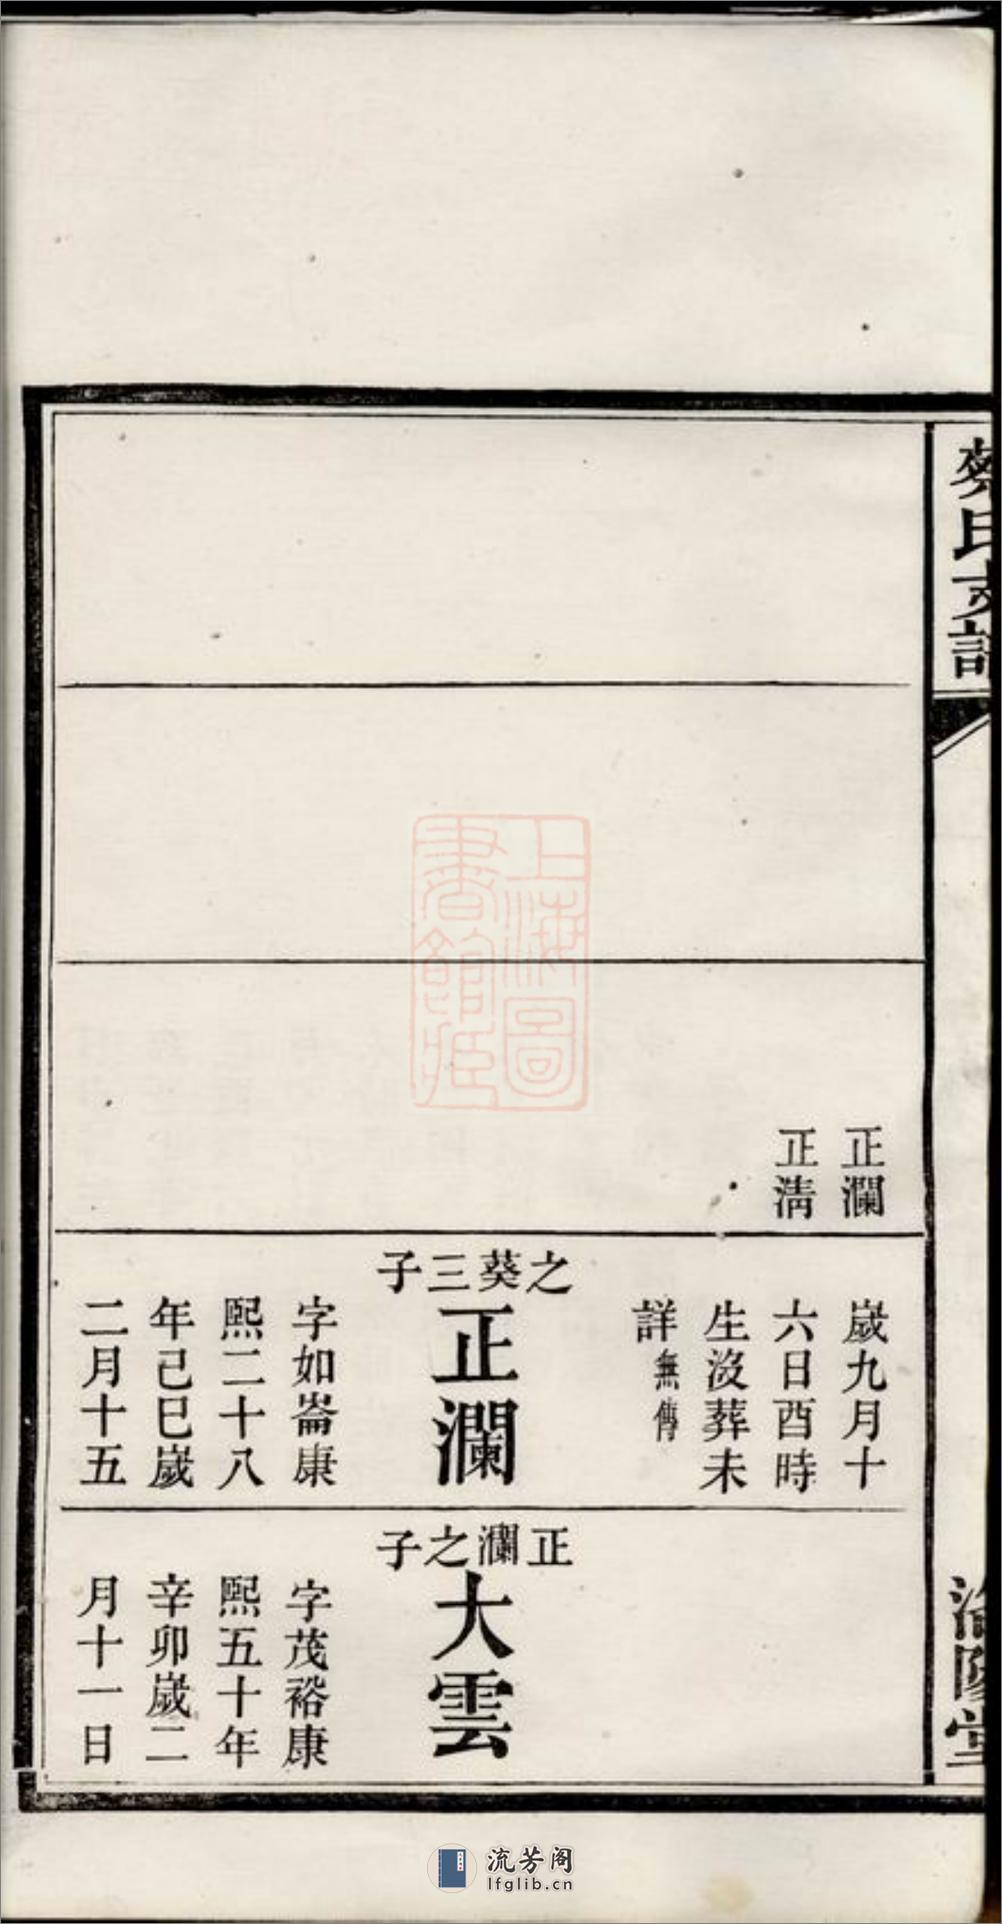 蔡氏支譜
濟陽堂
正瀾
正淸
歲九月十
六日酉時
生沒葬未
詳無傳
之葵三子
正瀾
字如崙康
熙二十八
年己巳歲
二月十五
正瀾之子
大雲
字茂裕康
熙五十年
辛卯歲二
月十一日
上海圖
書館藏
流芳阁
lfglib.cn